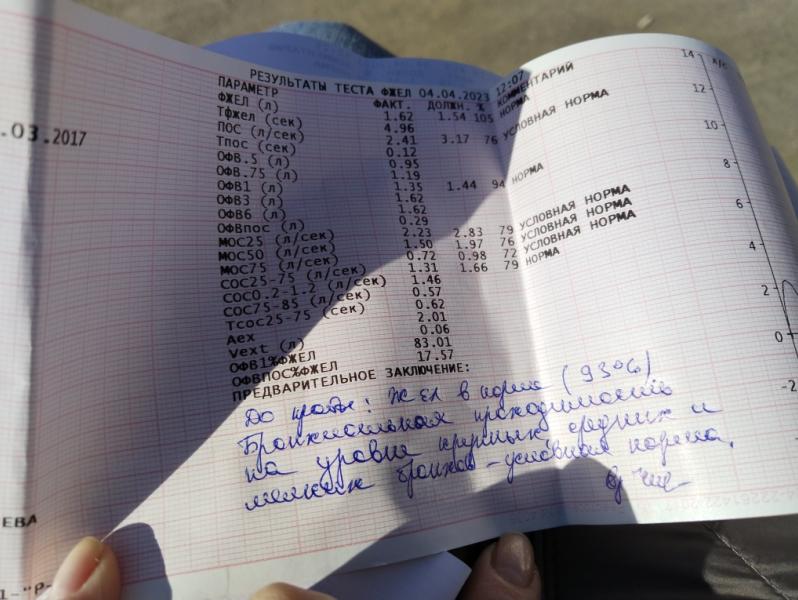 РЕЗУЛЬТАТЫ ТЕСТА ФЖЕЛ 04.04.2023 12:07
ПАРАМЕТР ФАКТ. ДОЛЖН. % КОММЕНТАРИЙ
ФЖЕЛ (л) 1.62 1.54 105 НОРМА
Тфжел (сек) 4.96
ПОС (л/сек) 2.41 3.17 76 УСЛОВНАЯ НОРМА
Тпос (сек) 0.12
ОФВ.5 (л) 0.95
ОФВ.75 (л) 1.19
ОФВ1 (л) 1.35 1.44 94 НОРМА
ОФВ3 (л) 1.62
ОФВ6 (л) 1.62
ОФВпос (л) 0.29
МОС25 (л/сек) 2.23 2.83 79 УСЛОВНАЯ НОРМА
МОС50 (л/сек) 1.50 1.97 76 УСЛОВНАЯ НОРМА
МОС75 (л/сек) 0.72 0.98 72 УСЛОВНАЯ НОРМА
СОС25-75 (л/сек) 1.31 1.66 79 НОРМА
СОС0.2-1.2 (л/сек) 1.46
СОС75-85 (л/сек) 0.57
Тсос25-75 (сек) 0.62
Аех 2.01
Vext (л) 0.06
ОФВ1%ФЖЕЛ 83.01
ОФВПОС%ФЖЕЛ 17.57
ПРЕДВАРИТЕЛЬНОЕ ЗАКЛЮЧЕНИЕ:
До пробы: ЖЕЛ в норме (93%)
Бронхиальная проходимость
на уровне крупных средних и
мелких бронхов - условная норма.
.03.2017
ЕВА
14
12
10
8
6
4
2
0
-2